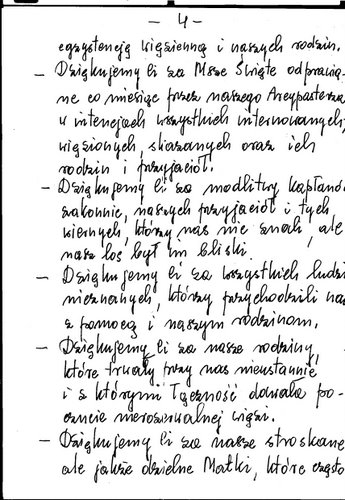 - 4 -
egzystencją więzienną i naszych rodzin.
- Dziękujemy Ci za Msze Święte odprawia-
ne co miesiąc przez naszego Arcypasterza
w intencjach wszystkich internowanych,
więzionych, skazanych oraz ich
rodzin i przyjaciół.
- Dziękujemy Ci za modlitwy kapłanów
zakonnic, naszych przyjaciół i tych
wiernych, którzy nas nie znali, ale
nasz los był im bliski.
- Dziękujemy Ci za wszystkich ludzi
nieznanych, którzy przychodzili nam
z pomocą i naszym rodzinom.
- Dziękujemy Ci za nasze rodziny,
które trwały przy nas nieustannie
i z którymi łączność dawała po-
czucie nierozerwalnej więzi.
- Dziękujemy Ci za nasze stroskane
ale jakże dzielne Matki, które często